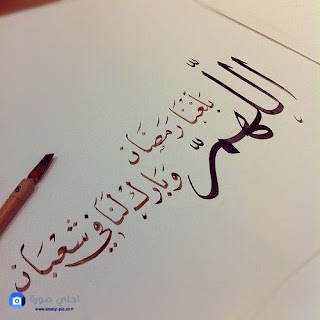 اللَّهُمَّ
بَلِّغْنَا رَمَضَان
وَبَارِكْ لَنَا فِي شَعْبَان
احلي صورة
www.lovely-pic.com